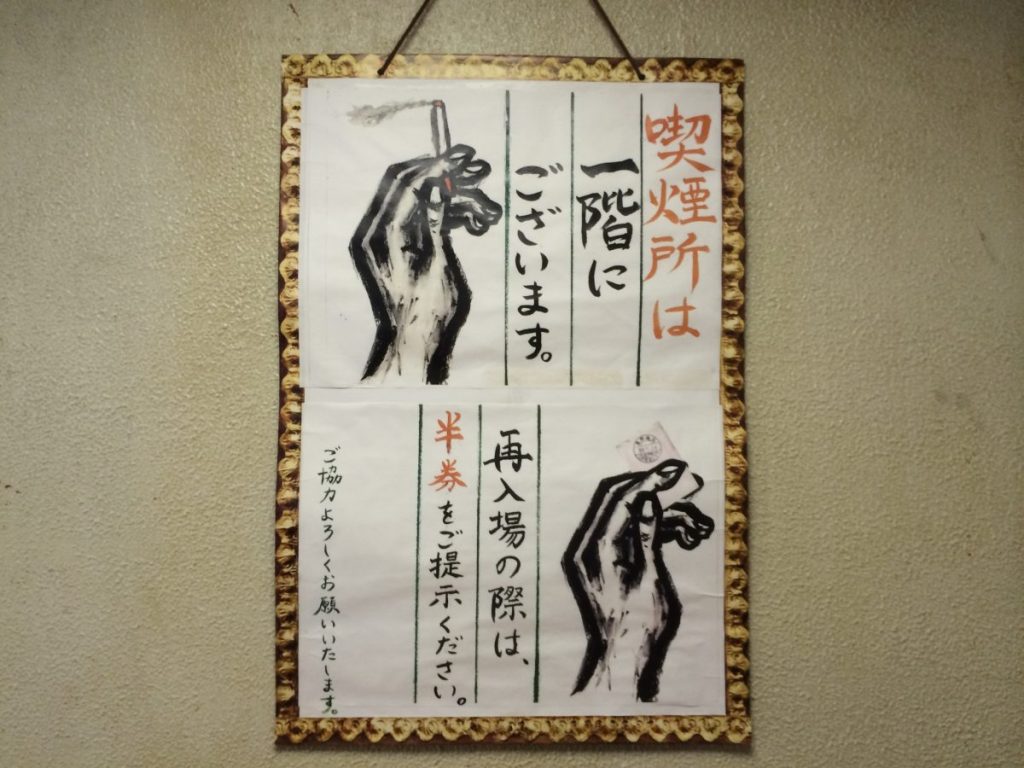 喫煙所は
一階に
ございます。
再入場の際は、
半券をご提示ください。
ご協力よろしくお願いいたします。